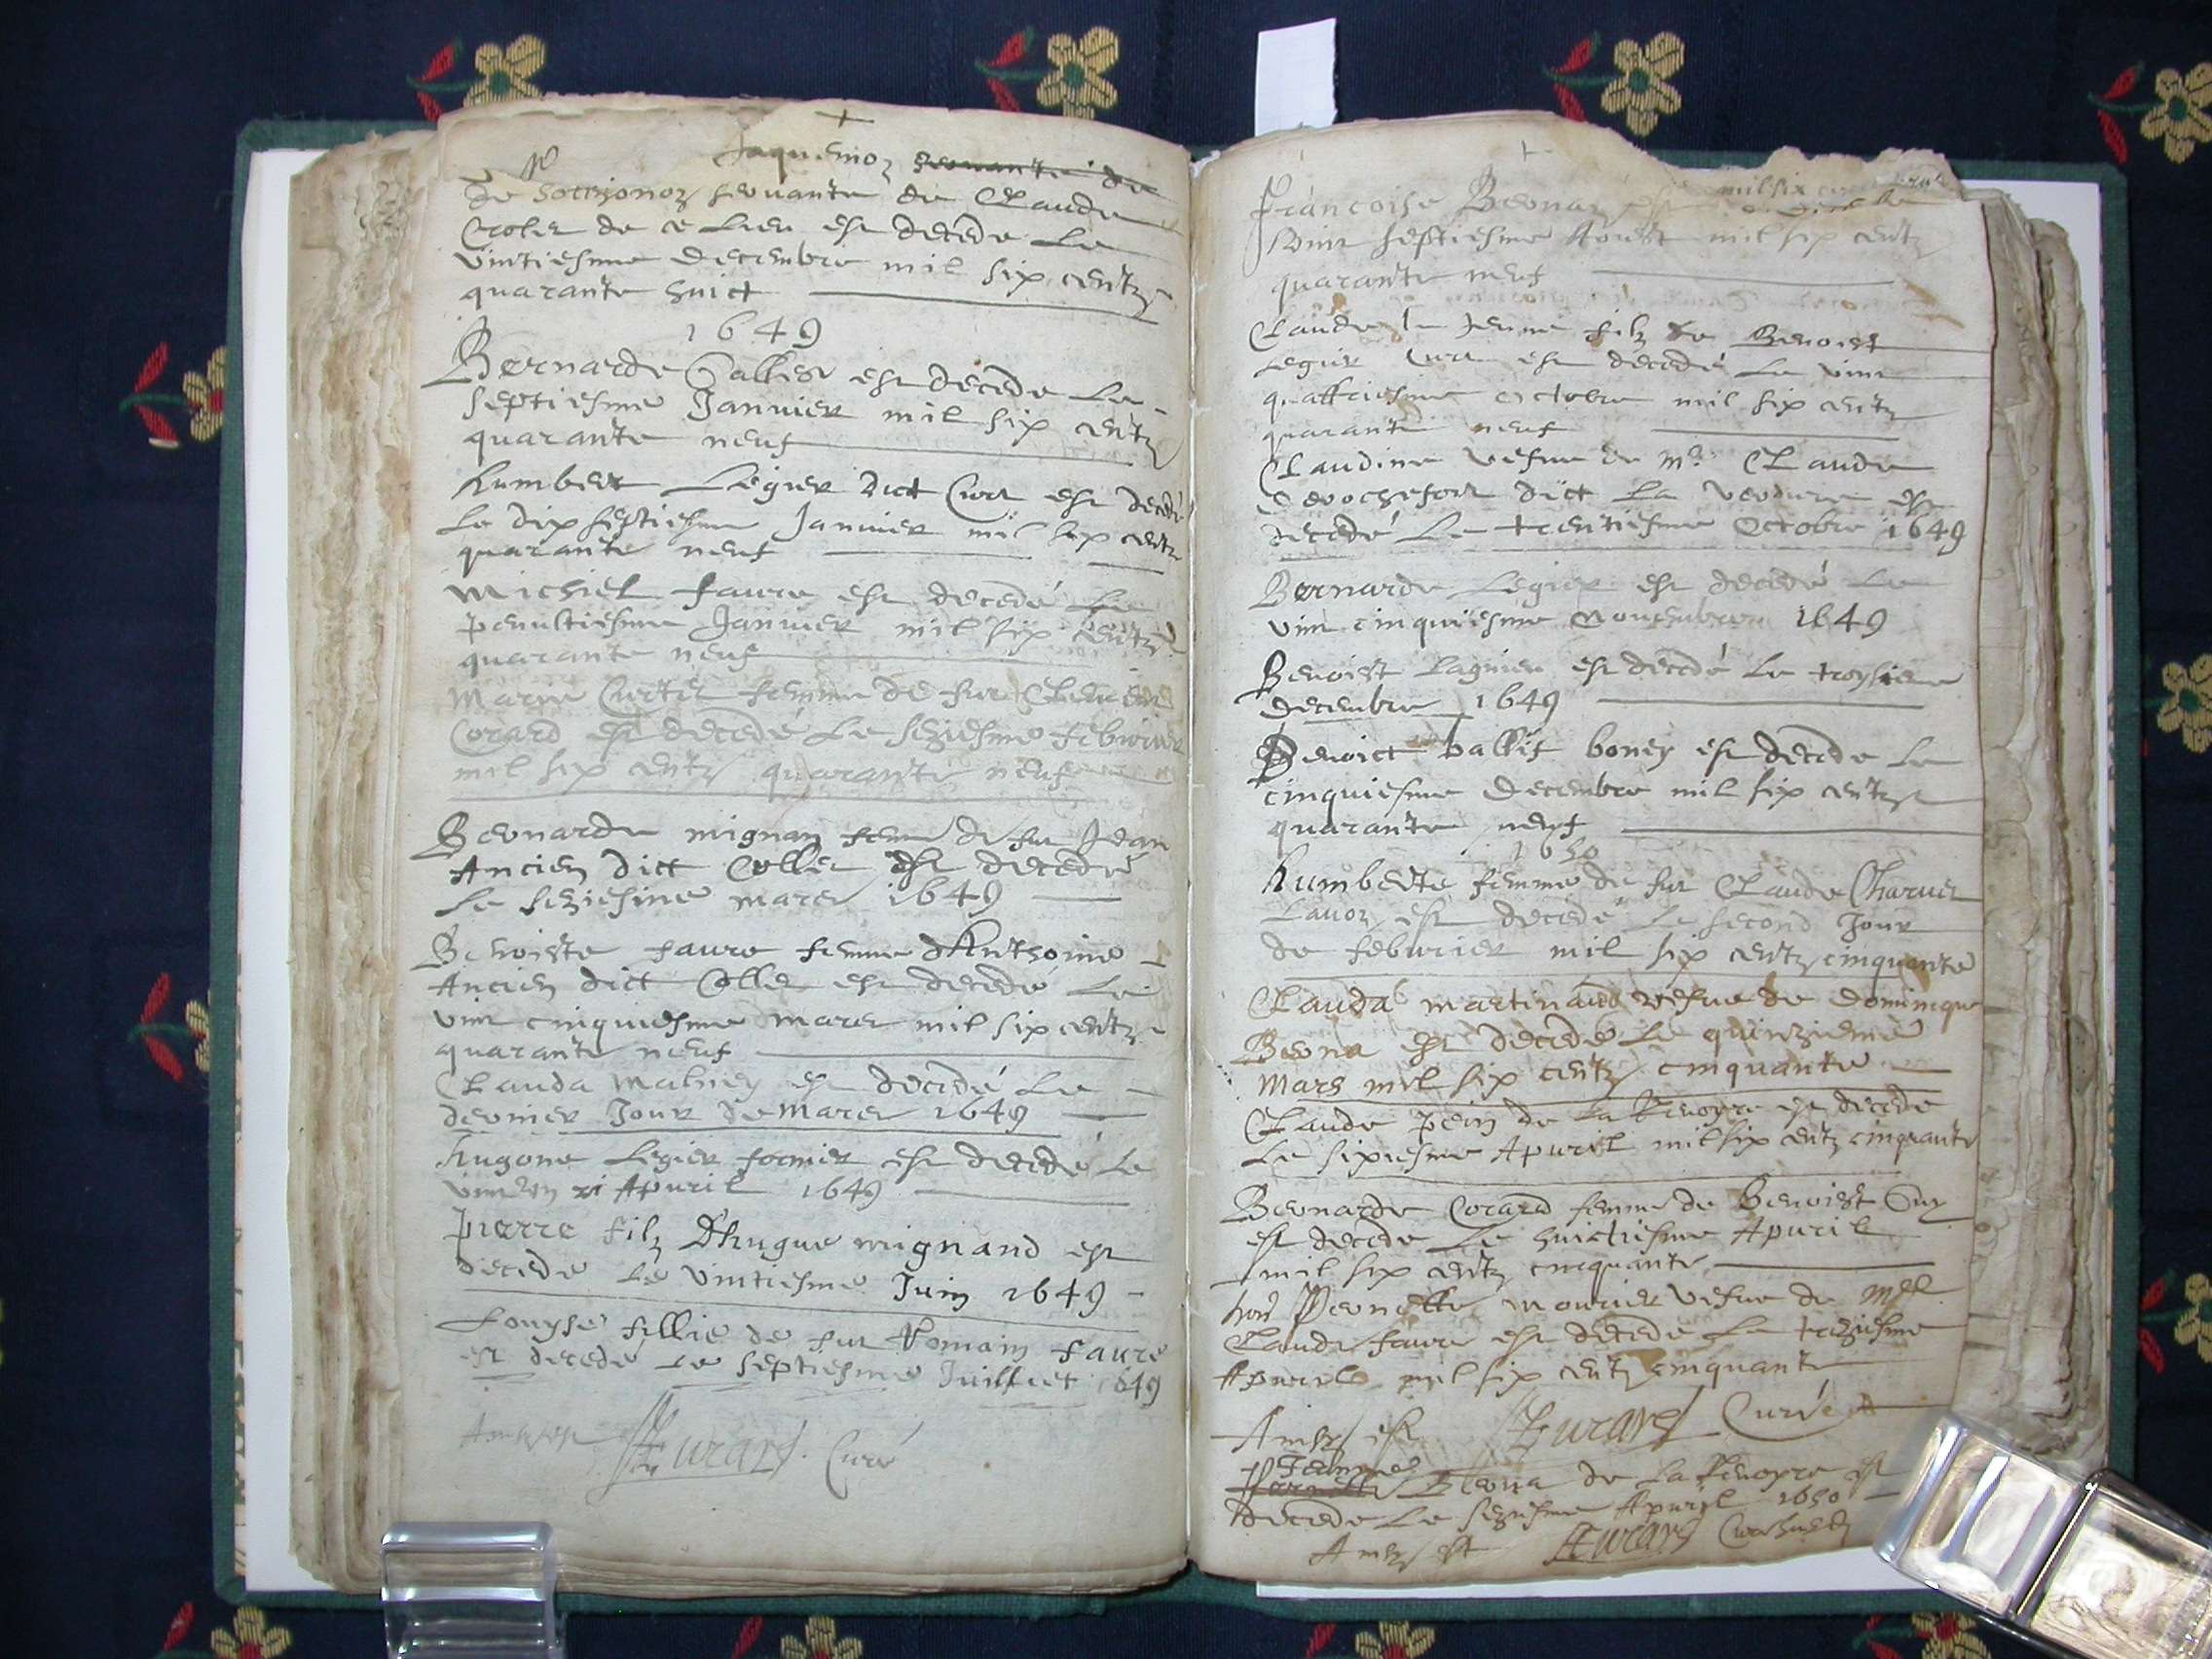 Jaquemoz servante de
de servante de Claude
de ce Lieu est decede Le
vintiesme decembre mil six centz
quarante huict
1649
Bernarde est decede Le
septiesme Januier mil six centz
quarante neuf
humbert Legier dict Curt est decedé
Le dix septiesme Januier mil six centz
quarante neuf
Michiel faure est decedé Le
penultiesme Januier mil six centz
quarante neuf
Marie Curtet femme de fut
Corard est decedé Le seziesme febvrier
mil six centz quarante neuf
Bernarde mignan feme de fut Jean
Ancien dict Collet est decedé
Le seziesme mars 1649
Benoiste faure femme dAnthoine
Ancien dict Collet est decedé Le
vint cinquiesme mars mil six centz
quarante neuf
Clauda est decedé Le
dernier Jour de mars 1649
hugone Legier fornier est decedé Le
Apuril 1649
pierre filz Dhugue mignand est
decede Le vintiesme Juin 1649
Louyse fillie de fut Romain faure
est decedé Le septiesme Juilliet 1649
Curé
Francoise
vint septiesme Aoust mil six centz
quarante neuf
Claude le Jeune filz de Benoist
Legier Curt est decedé Le vint
quattriesme octobre mil six centz
quarante neuf
Claudine vefue de Mre Claude
derochefort dict La verdure est
decedé Le trentiesme Octobre 1649
Bernarde Legier est decedé Le
vint cinquiesme Nouembre 1649
Benoist Lagnieu est decedé Le troysieme
decembre 1649
Benoict ballif boney est decede Le
cinquiesme Decembre mil six centz
quarante neuf
1650
humberte femme de fut Claude Charuet
Lauoz est decedé Le second Jour
de febvrier mil six centz cinquante
Clauda martinand vefue de dominique
Berna est decedé Le quinzieme
Mars mil six centz cinquante
Claude pein de La Reuoyre est decede
Le sixiesme Apuril mil six centz cinquante
Bernarde Corard femme de Benoist Suy
est decede Le huictiesme Apuril
mil six centz cinquante
hon Pernette mounier vefue de
Claude faure est decede Le treziesme
Apuril mil six centz cinquante
Curé
Jeanne
Pernette Berna de La Reuoyre est
decede Le seziesme Apuril 1650